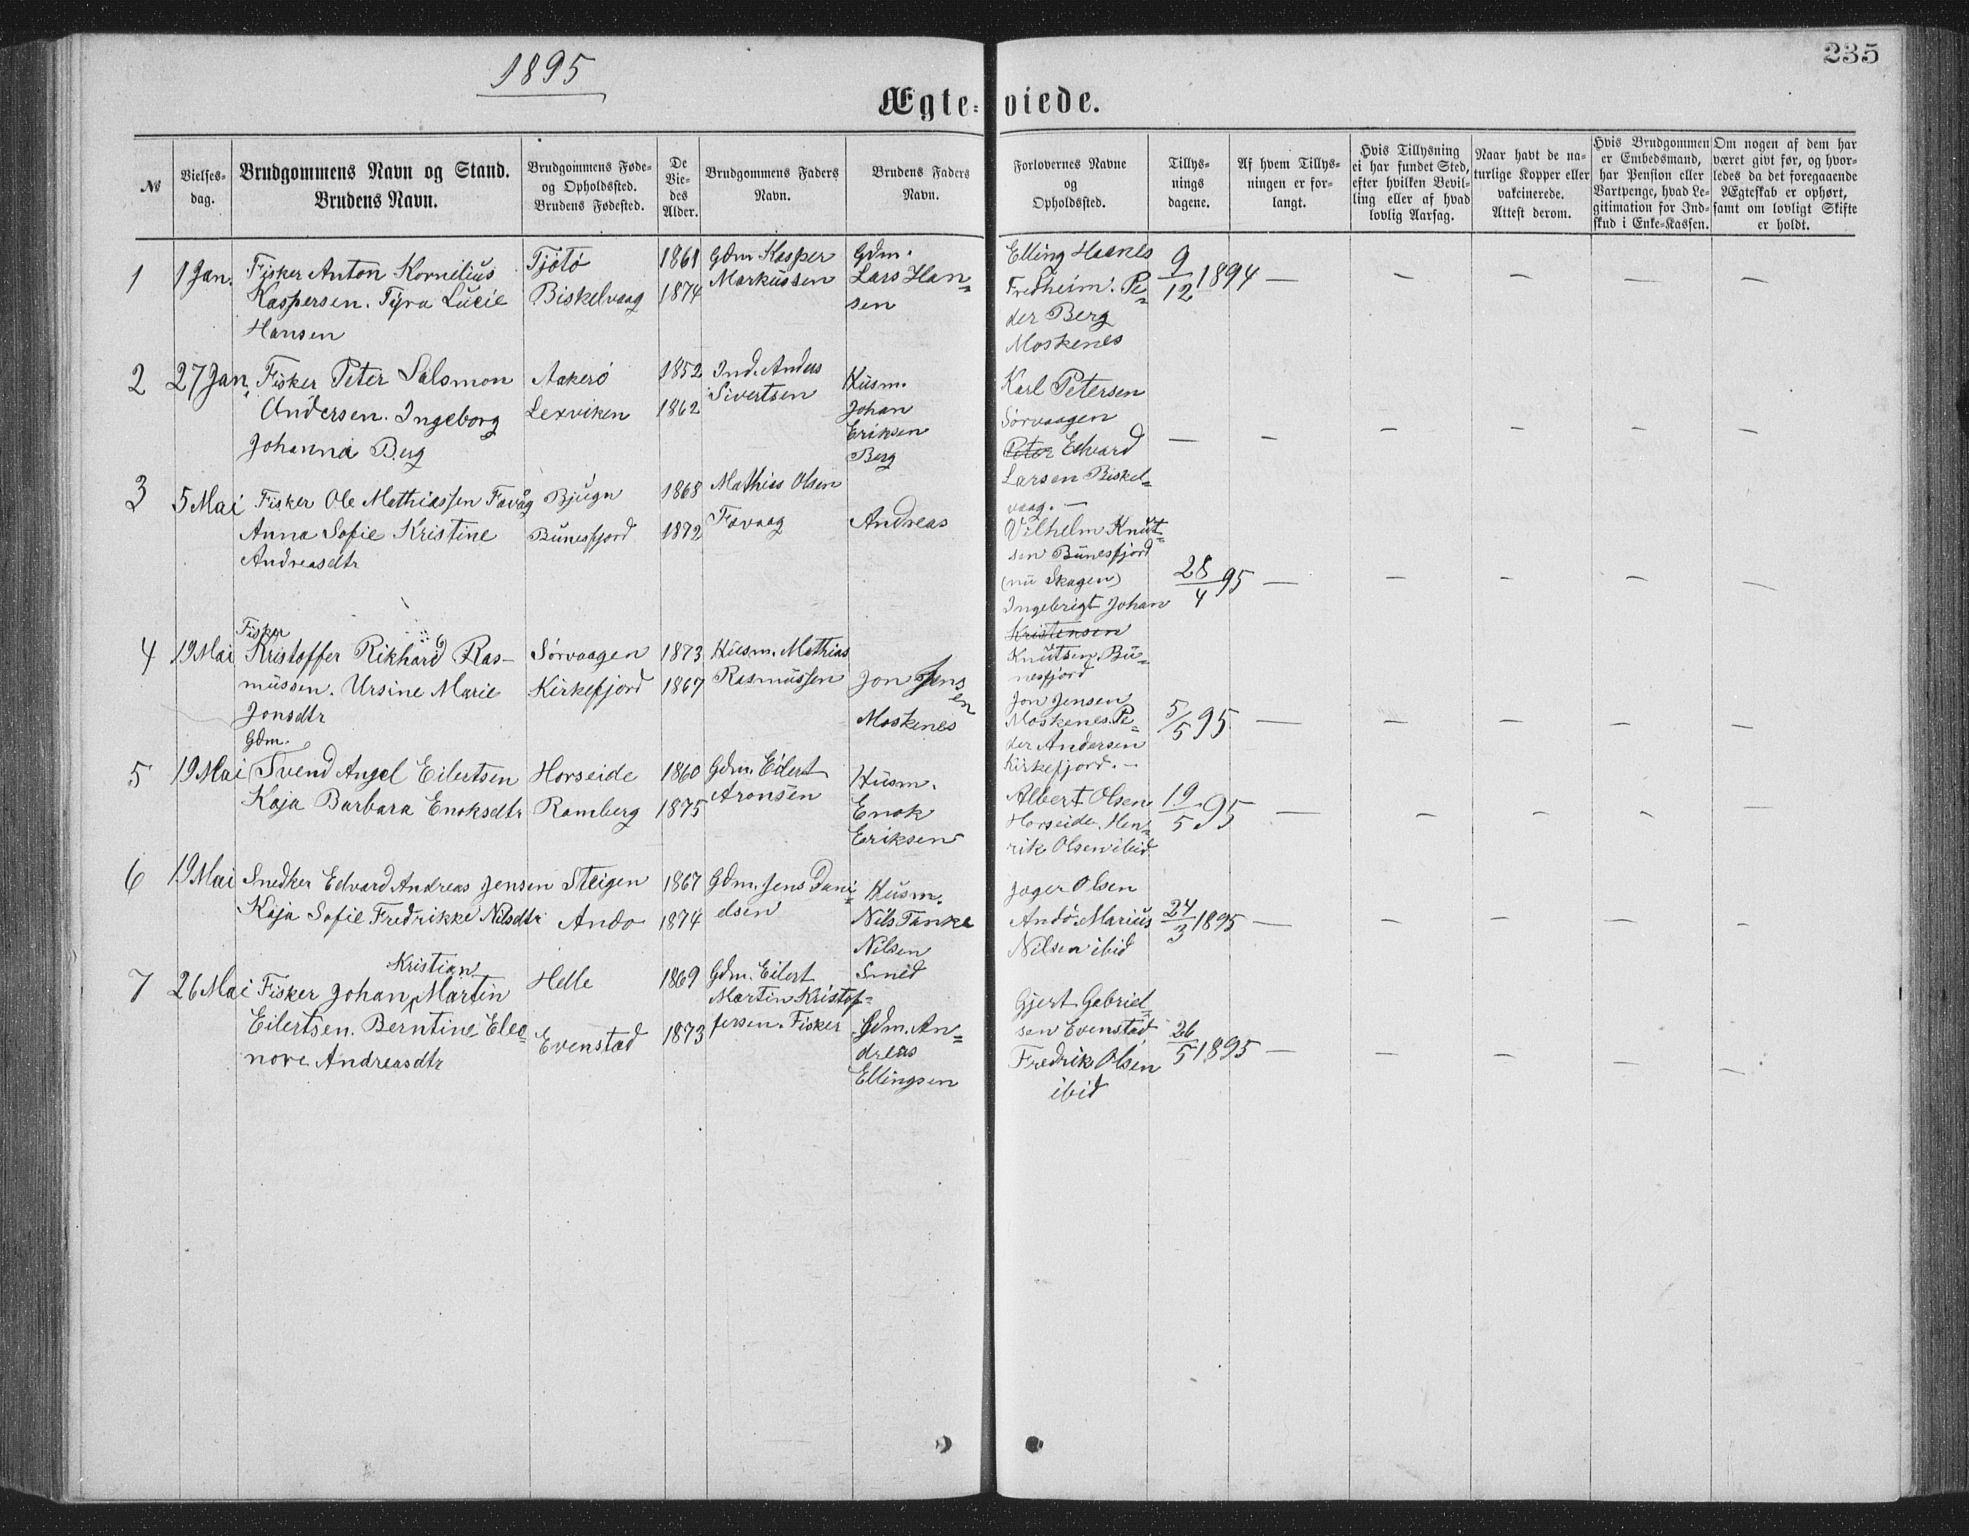 1895
235
Ægte-viede.
№
Vielses-
dag.
Brudgommens Navn og Stand.
Brudens Navn.
Brudgommens Føde-
og Opholdssted.
Brudens Fødested.
De
Vie-
des
Alder.
Brudgommens Faders
Navn.
Brudens Faders
Navn.
Forlovernes Navne
og
Opholdssted.
Tillys-
nings
dagene.
Af hvem Tillys-
ningen er for-
langt.
Hvis Tillysning
ei har fundet Sted,
efter hvilken Bevil-
ling eller af hvad
lovlig Aarsag.
Naar havt de na-
turlige Kopper eller
vakcinerede.
Attest derom.
Hvis Brudgommen
er Embedsmand,
har Pension eller
Vartpenge, hvad Le-
gitimation for Ind-
skud i Enke-Kassen.
Om nogen af dem har
været givt før, og hvor-
ledes da det foregaaende
Ægteskab er ophørt,
samt om lovligt Skifte
er holdt.
1
1 Jan.
Fisker Anton Kornelius
Kaspersen. Tyra Lucie
Hansen
Tjötö
Biskelvaag
1861
1874
Gdm Kasper
Markussen
Gdm.
Lars Han-
sen
Elling Haanes
Fredheim. Pe-
der Berg
Moskenes
9/12 1894 — — — — —
2
27 Jan.
Fisker Peter Salomon
Andersen. Ingeborg
Johanna Berg
Aakerö
Lexviken
1852
1862
Ind. Anders
Sivertsen
Husm.
Johan
Eriksen
Berg
Karl Petersen
Sørvaagen
Peter Edvard
Larsen Biskel-
vaag. —
— — — — — —
3
5 Mai
Fisker Ole Mathiassen Favåg
Anna Sofie Kristine
Andreasdtr
Bjugn
Bunesfjord
1868
1872
Mathias Olsen
Favaag
Andreas
Vilhelm Knut-
sen Bunesfjord
(nu Skagen)
Ingebrigt Johan
Kristensen
Knutsen Bu-
nesfjord
28/4 95 — — — — —
4
19 Mai
Fisker
Kristoffer Rikhard Ras-
mussen. Ursine Marie
Jonsdtr
Sörvaagen
Kirkefjord
1873
1867
Husm. Mathias
Rasmussen
Jon Jens
en
Moskenes
Jon Jensen
Moskenes. Pe-
der Andersen
Kirkefjord. —
5/5 95 — — — — —
5
19 Mai
Gdm.
Svend Angel Eilertsen
Kaja Barbara Enoksdtr
Horseide
Ramberg
1860
1875
Gdm. Eilert
Aronsen
Husm.
Enok
Eriksen
Albert Olsen
Horseide. Hen-
rik Olsen ibid
19/5 95 — — — — —
6
19 Mai
Snedker Edvard Andreas Jensen
Kaja Sofie Fredrikke Nilsdtr
Steigen
Andø
1867
1874
Gdm. Jens Dani-
elsen
Husm.
Nils Tanke
Nilsen
Jæger Olsen
Andö. Marius
Nilsen ibid
24/3 1895 — — — — —
7
26 Mai
Kristian
Fisker Johan Martin
Eilertsen. Berntine Eleo-
nore Andreasdtr
Helle
Evenstad
1869
1873
Gdm. Eilert
Martin Kristof-
fersen. Fisker
Smed
Gdm. An-
dreas
Ellingsen
Gjert Gabriel-
sen Evenstad
Fredrik Olsen
ibid
26/5 1895 — — — — —